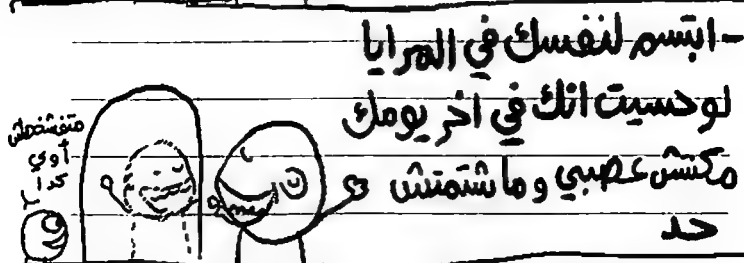 - ابتسم لنفسك في المرايا
لو حسيت انك في اخر يومك
مكنتش عصبي و ما شتمتش
حد
متفشخهاش
أوي
كدا